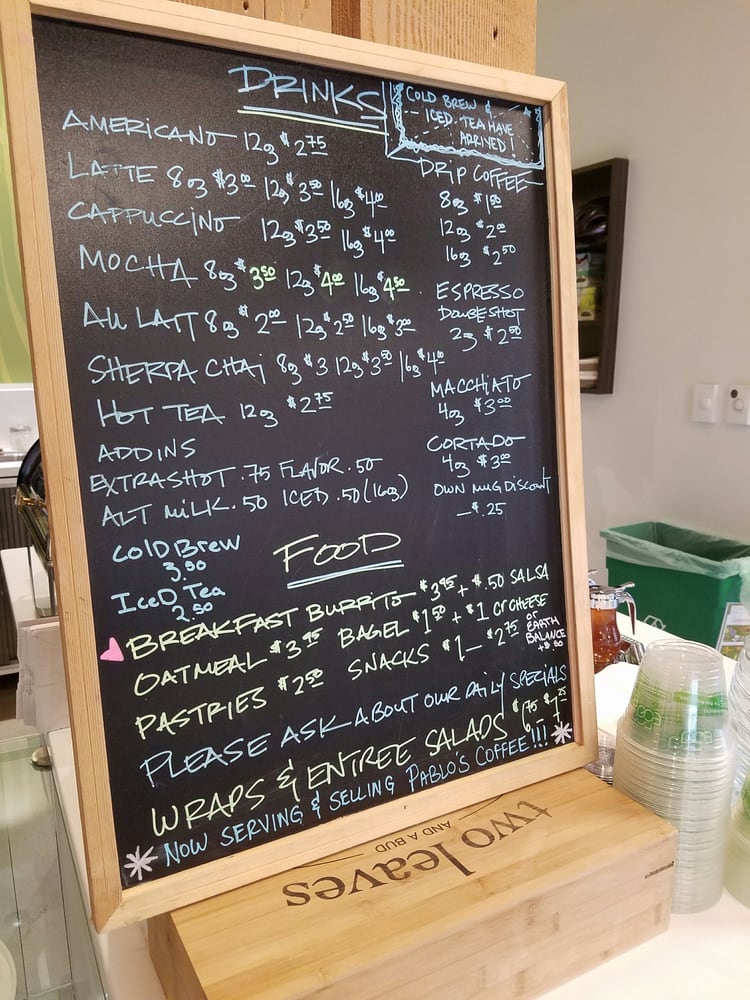 DRINKS
COLD BREW &
ICED TEA HAVE
ARRIVED!
AMERICANO 12oz $2.75
LATTE 8oz $3.00 12oz $3.50 16oz $4.00
CAPPUCCINO 12oz $3.50 16oz $4.00
MOCHA 8oz $3.50 12oz $4.00 16oz $4.50
AU LAIT 8oz $2.00 12oz $2.50 16oz $3.00
SHERPA CHAI 8oz $3 12oz $3.50 16oz $4.00
HOT TEA 12oz $2.75
ADD INS
EXTRA SHOT .75 FLAVOR .50
ALT MILK .50 ICED .50 (16oz)
DRIP COFFEE
8oz $1.50
12oz $2.00
16oz $2.50
ESPRESSO
DOUBLE SHOT
2oz $2.50
MACCHIATO
4oz $3.00
CORTADO
4oz $3.00
OWN MUG DISCOUNT
-$.25
COLD BREW
3.50
ICED TEA
2.50
FOOD
BREAKFAST BURRITO $3.95 + $.50 SALSA
OATMEAL $3.95 BAGEL $1.50 + $1 CR CHEESE
OR
EARTH
BALANCE
PASTRIES $2.50 SNACKS $1 - $2.75
PLEASE ASK ABOUT OUR DAILY SPECIALS
WRAPS & ENTREE SALADS
NOW SERVING & SELLING PABLO'S COFFEE!!!
two leaves
AND A BUD